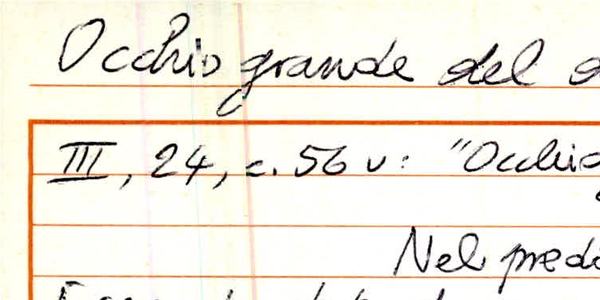 Occhio grande del
III, 24, c. 56 v: "Occhio
Nel predi